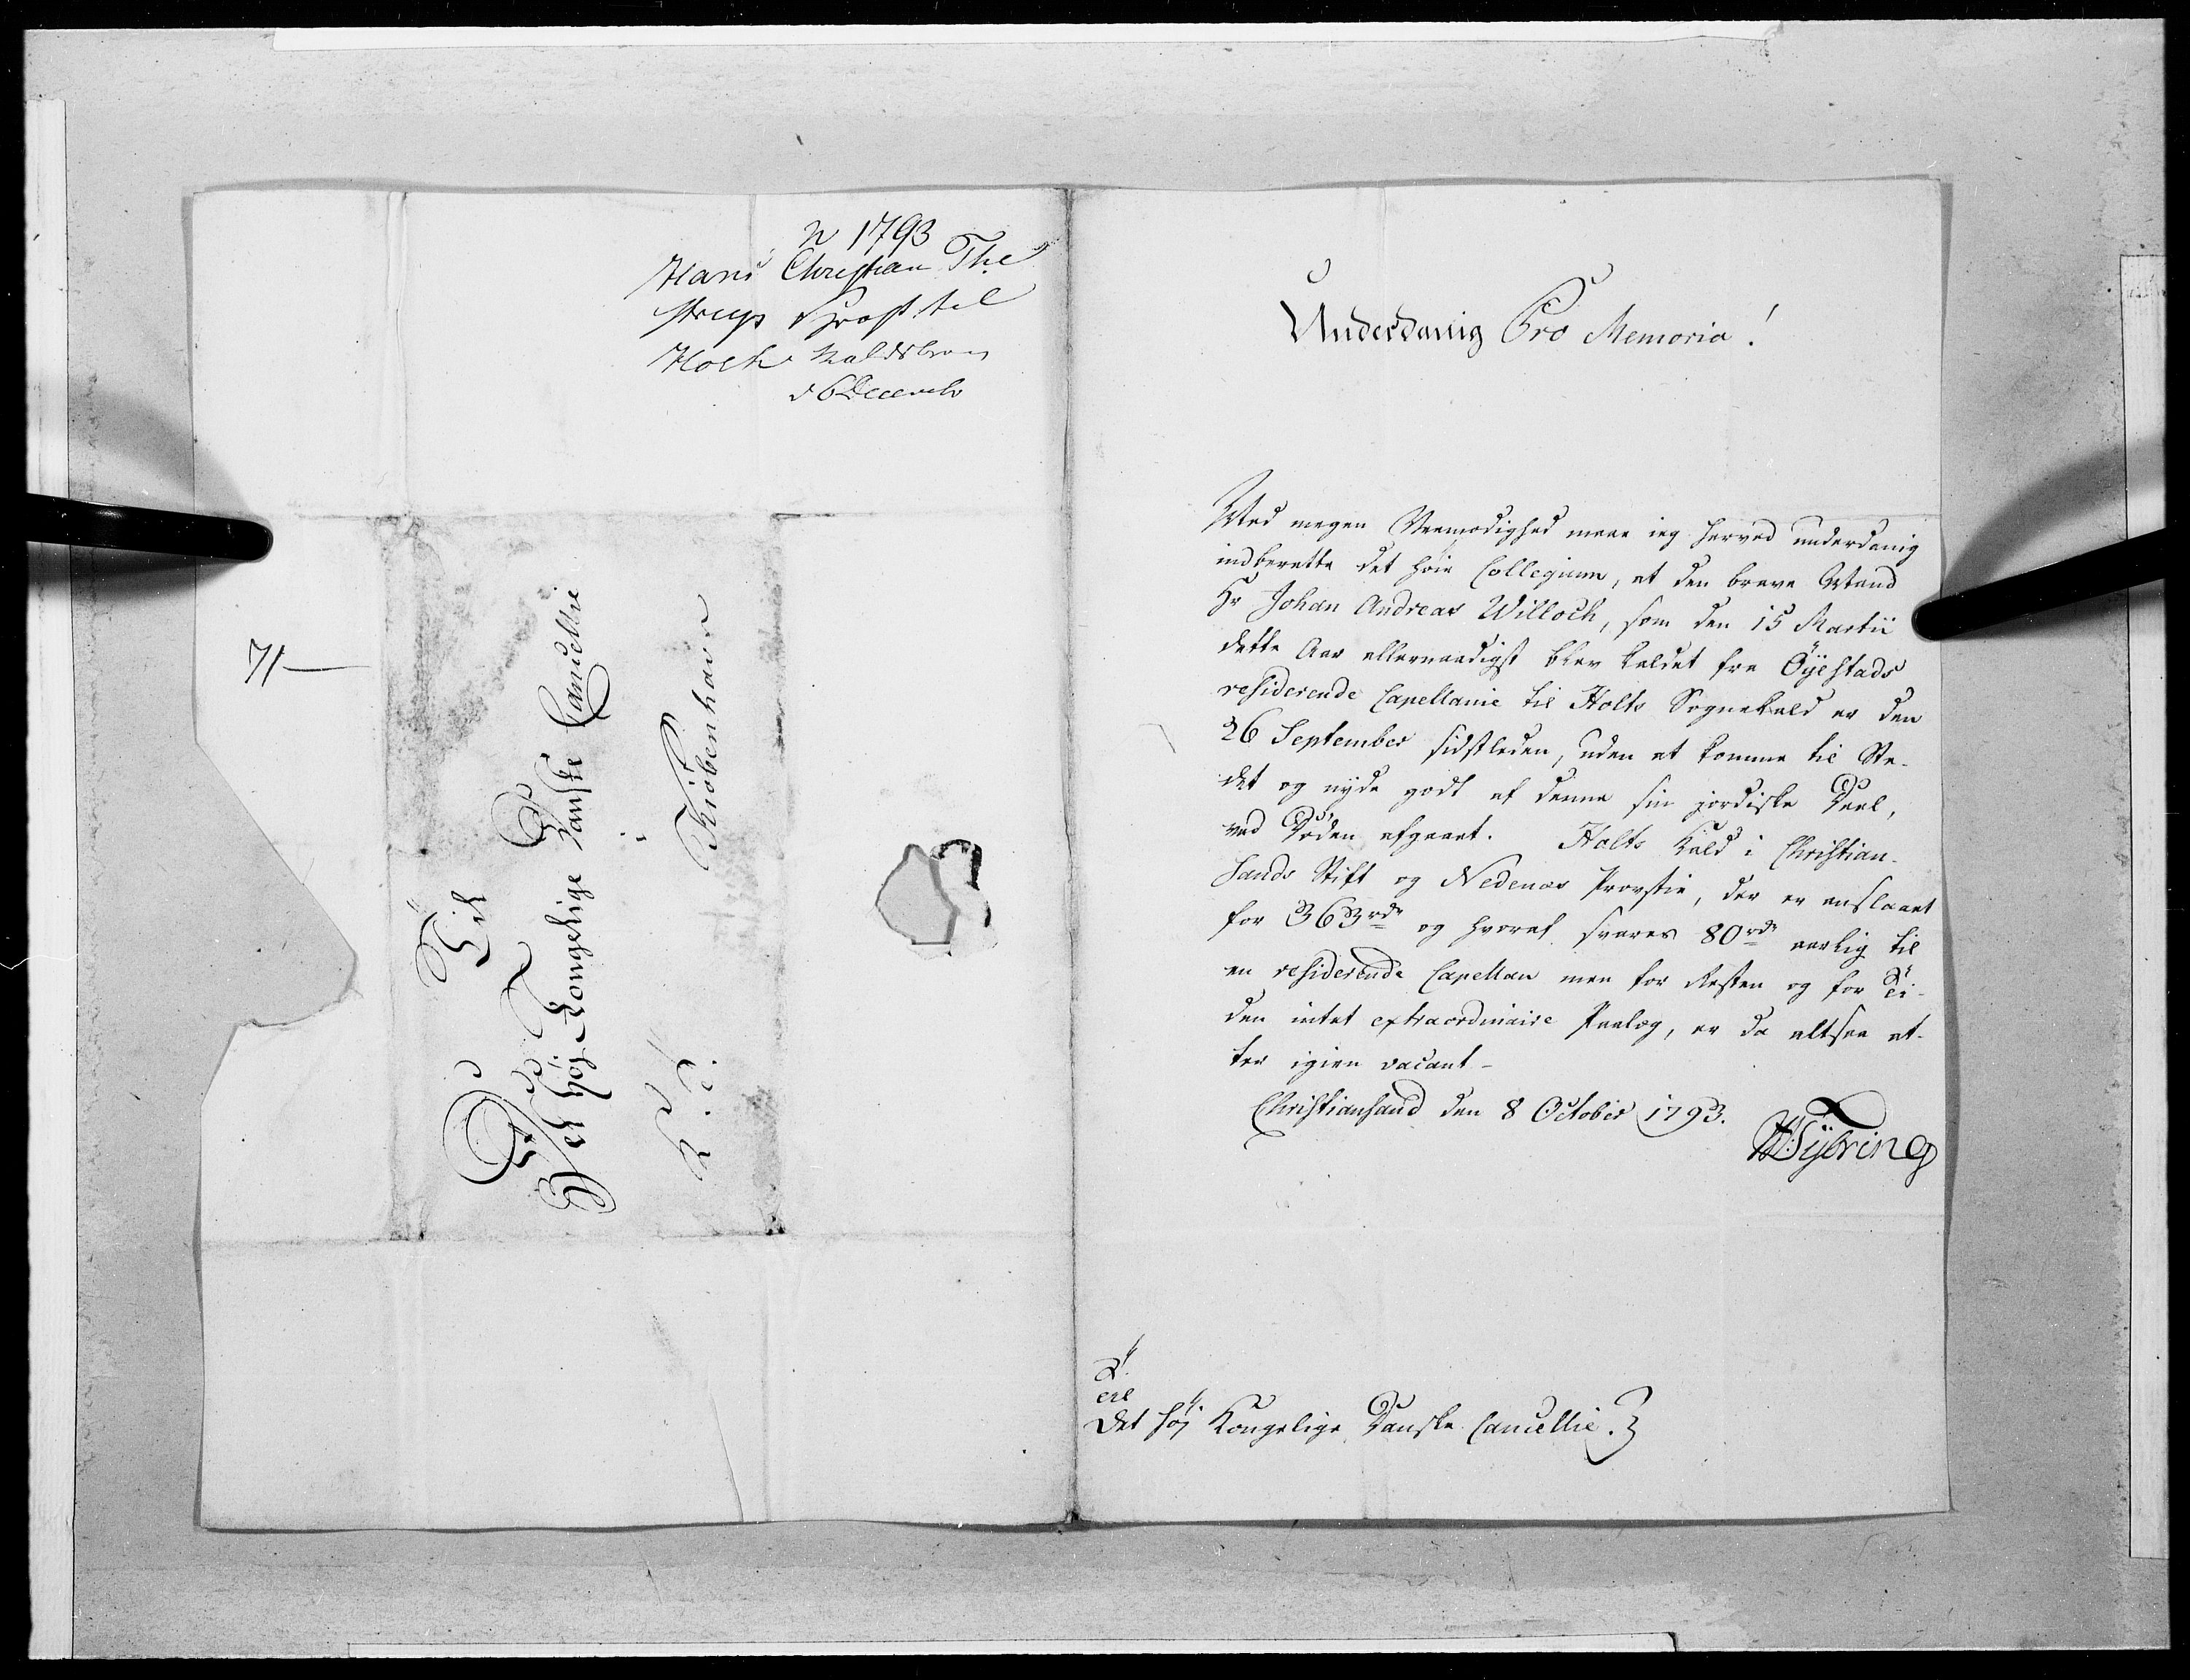 1793
Hans Christian The
strup Provst til
Holt Kaldsbrev
d 6 Decemb
71
Til
Det Høj-Kongelige Danske Cancellie
i
Kiøbenhavn
Underdanig Pro Memoria!
Med megen Veemodighed maae ieg herved underdanig
indberette det høie Collegium, at den brave Mand
Hr Johan Andreas Willoch, som den 15 Martii
dette Aar allernaadigst blev kaldet fra Öyestads
residerende Capellanie til Holts Sognekald er den
26 September sidstleden, uden at komme til Ste-
det og nyde godt af denne sin jordiske Deel,
ved Døden afgaaet. Holts Kald i Christian-
sands Stift og Nedenæs Provstie, der er anslaaet
for 363 rdr og hvoraf svares 80 rdr aarlig til
en residerende Capellan men for Resten og for Ti-
den intet extraordinaire Paalæg, er da altsaa at-
ter igien vacant-
Christiansand den 8 October 1793.
Tybring
Til
Det høj Kongelige Danske Cancellie.